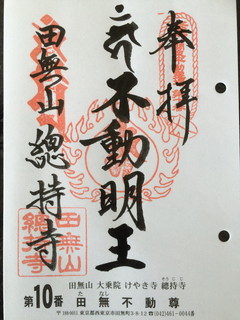 奉拝
不動明王
田無山 總持寺
田無山
總持寺
田無山 大乗院 けやき寺 總持寺
そうじじ
第10番 田無不動尊
たなし
〒188-0011 東京都西東京市田無町3-8-12 ☎(042)461-0044番